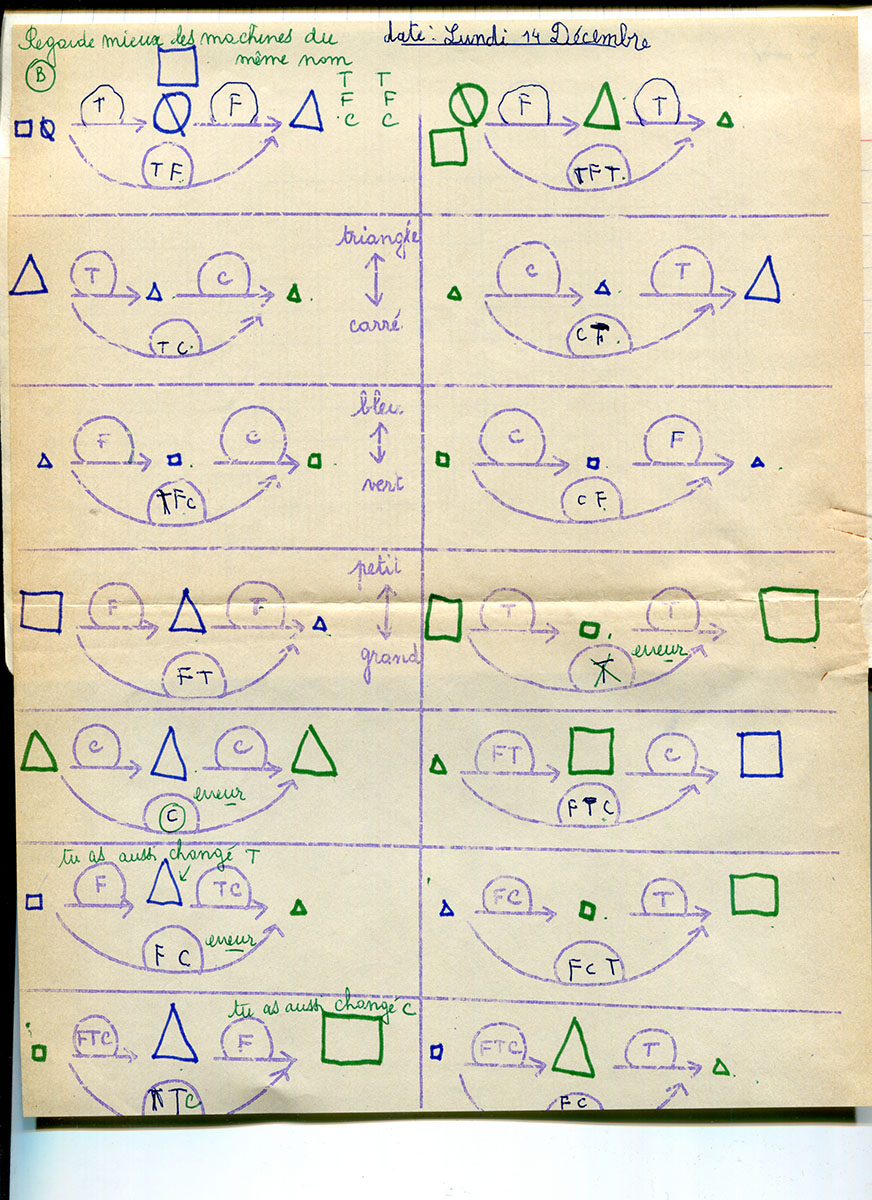 Regarde mieux les machines du même nom
date: Lundi 14 Décembre
B
T T
F F
C C
T F
T F
F T
T F T.
triangle
carré
T C
T C.
C T
C T.
bleu
vert
F C
F C
C F
C F
petit
grand
F T
F T
T T
erreur
T
C C
erreur
C
FT C
F T C
tu as aussi changé T
F TC
erreur
F C
FC T
F C T
tu as aussi changé C
FTC F
T C
FTC T
F C